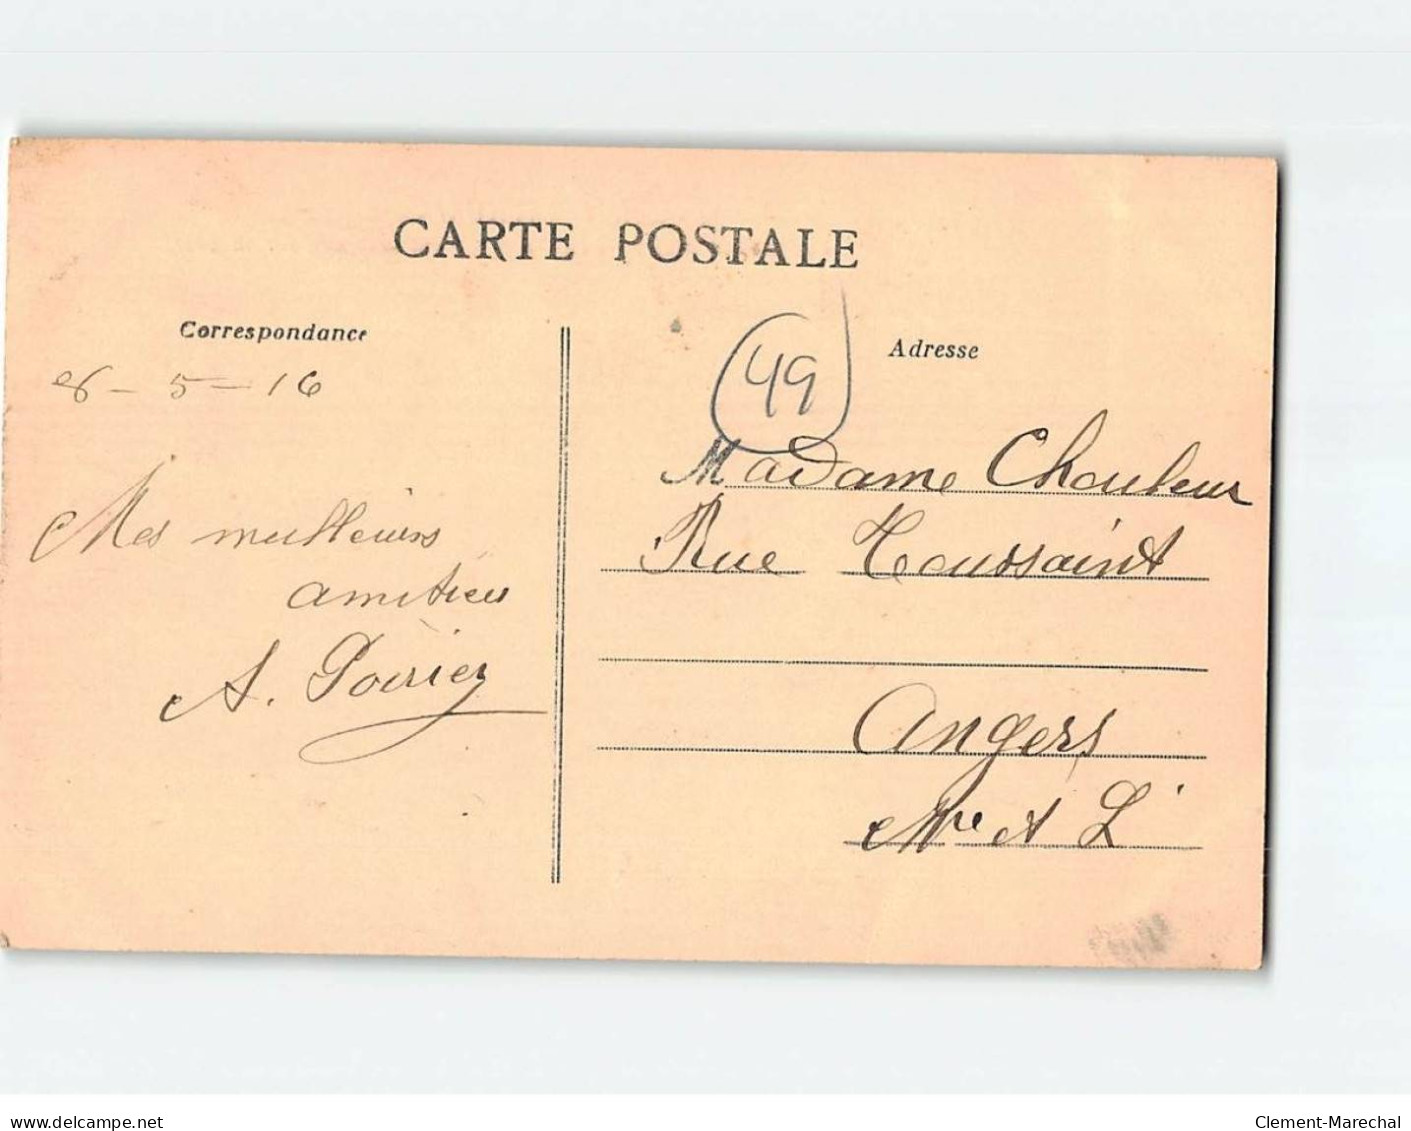 CARTE POSTALE
Correspondance
Adresse
49
8 - 5 - 16
Mes meilleurs
amitiés
A. Poirier
Madame
Rue Toussaint
Angers
Mne et L
delcampe.net
Clement-Marechal